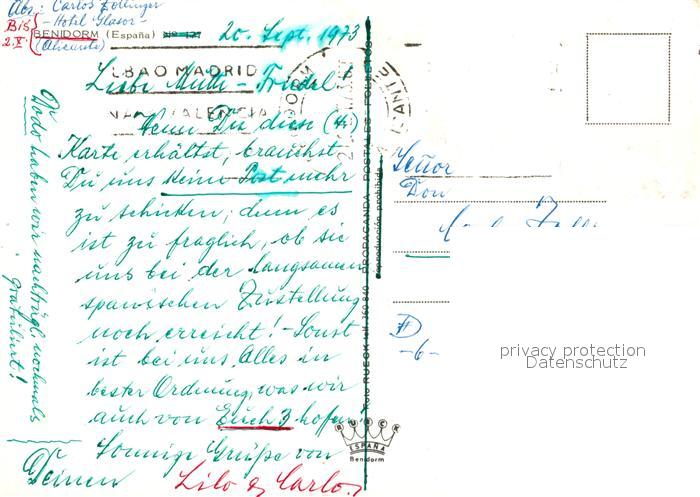 Abs: Carlos Zollinger
- Hotel Glasor -
Bis
2.X.
BENIDORM (España) Nº 127
(Alicante)
20. Sept. 1973
LBAO MADRID
VALENCIA
ANTE
Liebi Mutti - Friedel!
Wenn Du diese
Karte erhältst, brauchst
Du uns keine Post mehr
zu schicken, denn es
ist zu fraglich, ob sie
uns bei der langsamen
spanischen Zustellung
noch erreicht! - Sonst
ist bei uns Alles in
bester Ordnung, was wir
auch von Euch 3 hoffen.
Sonnige Grüße von
Deinen Lilo & Carlos
Dodo haben wir nachträgl. nochmals
gratuliert!
PROPAGANDA - POSTALES - FOLLETOS
Reproducción prohibida
RUECK
ESPAÑA
Benidorm
Señor
Don
D
-6-
privacy protection
Datenschutz